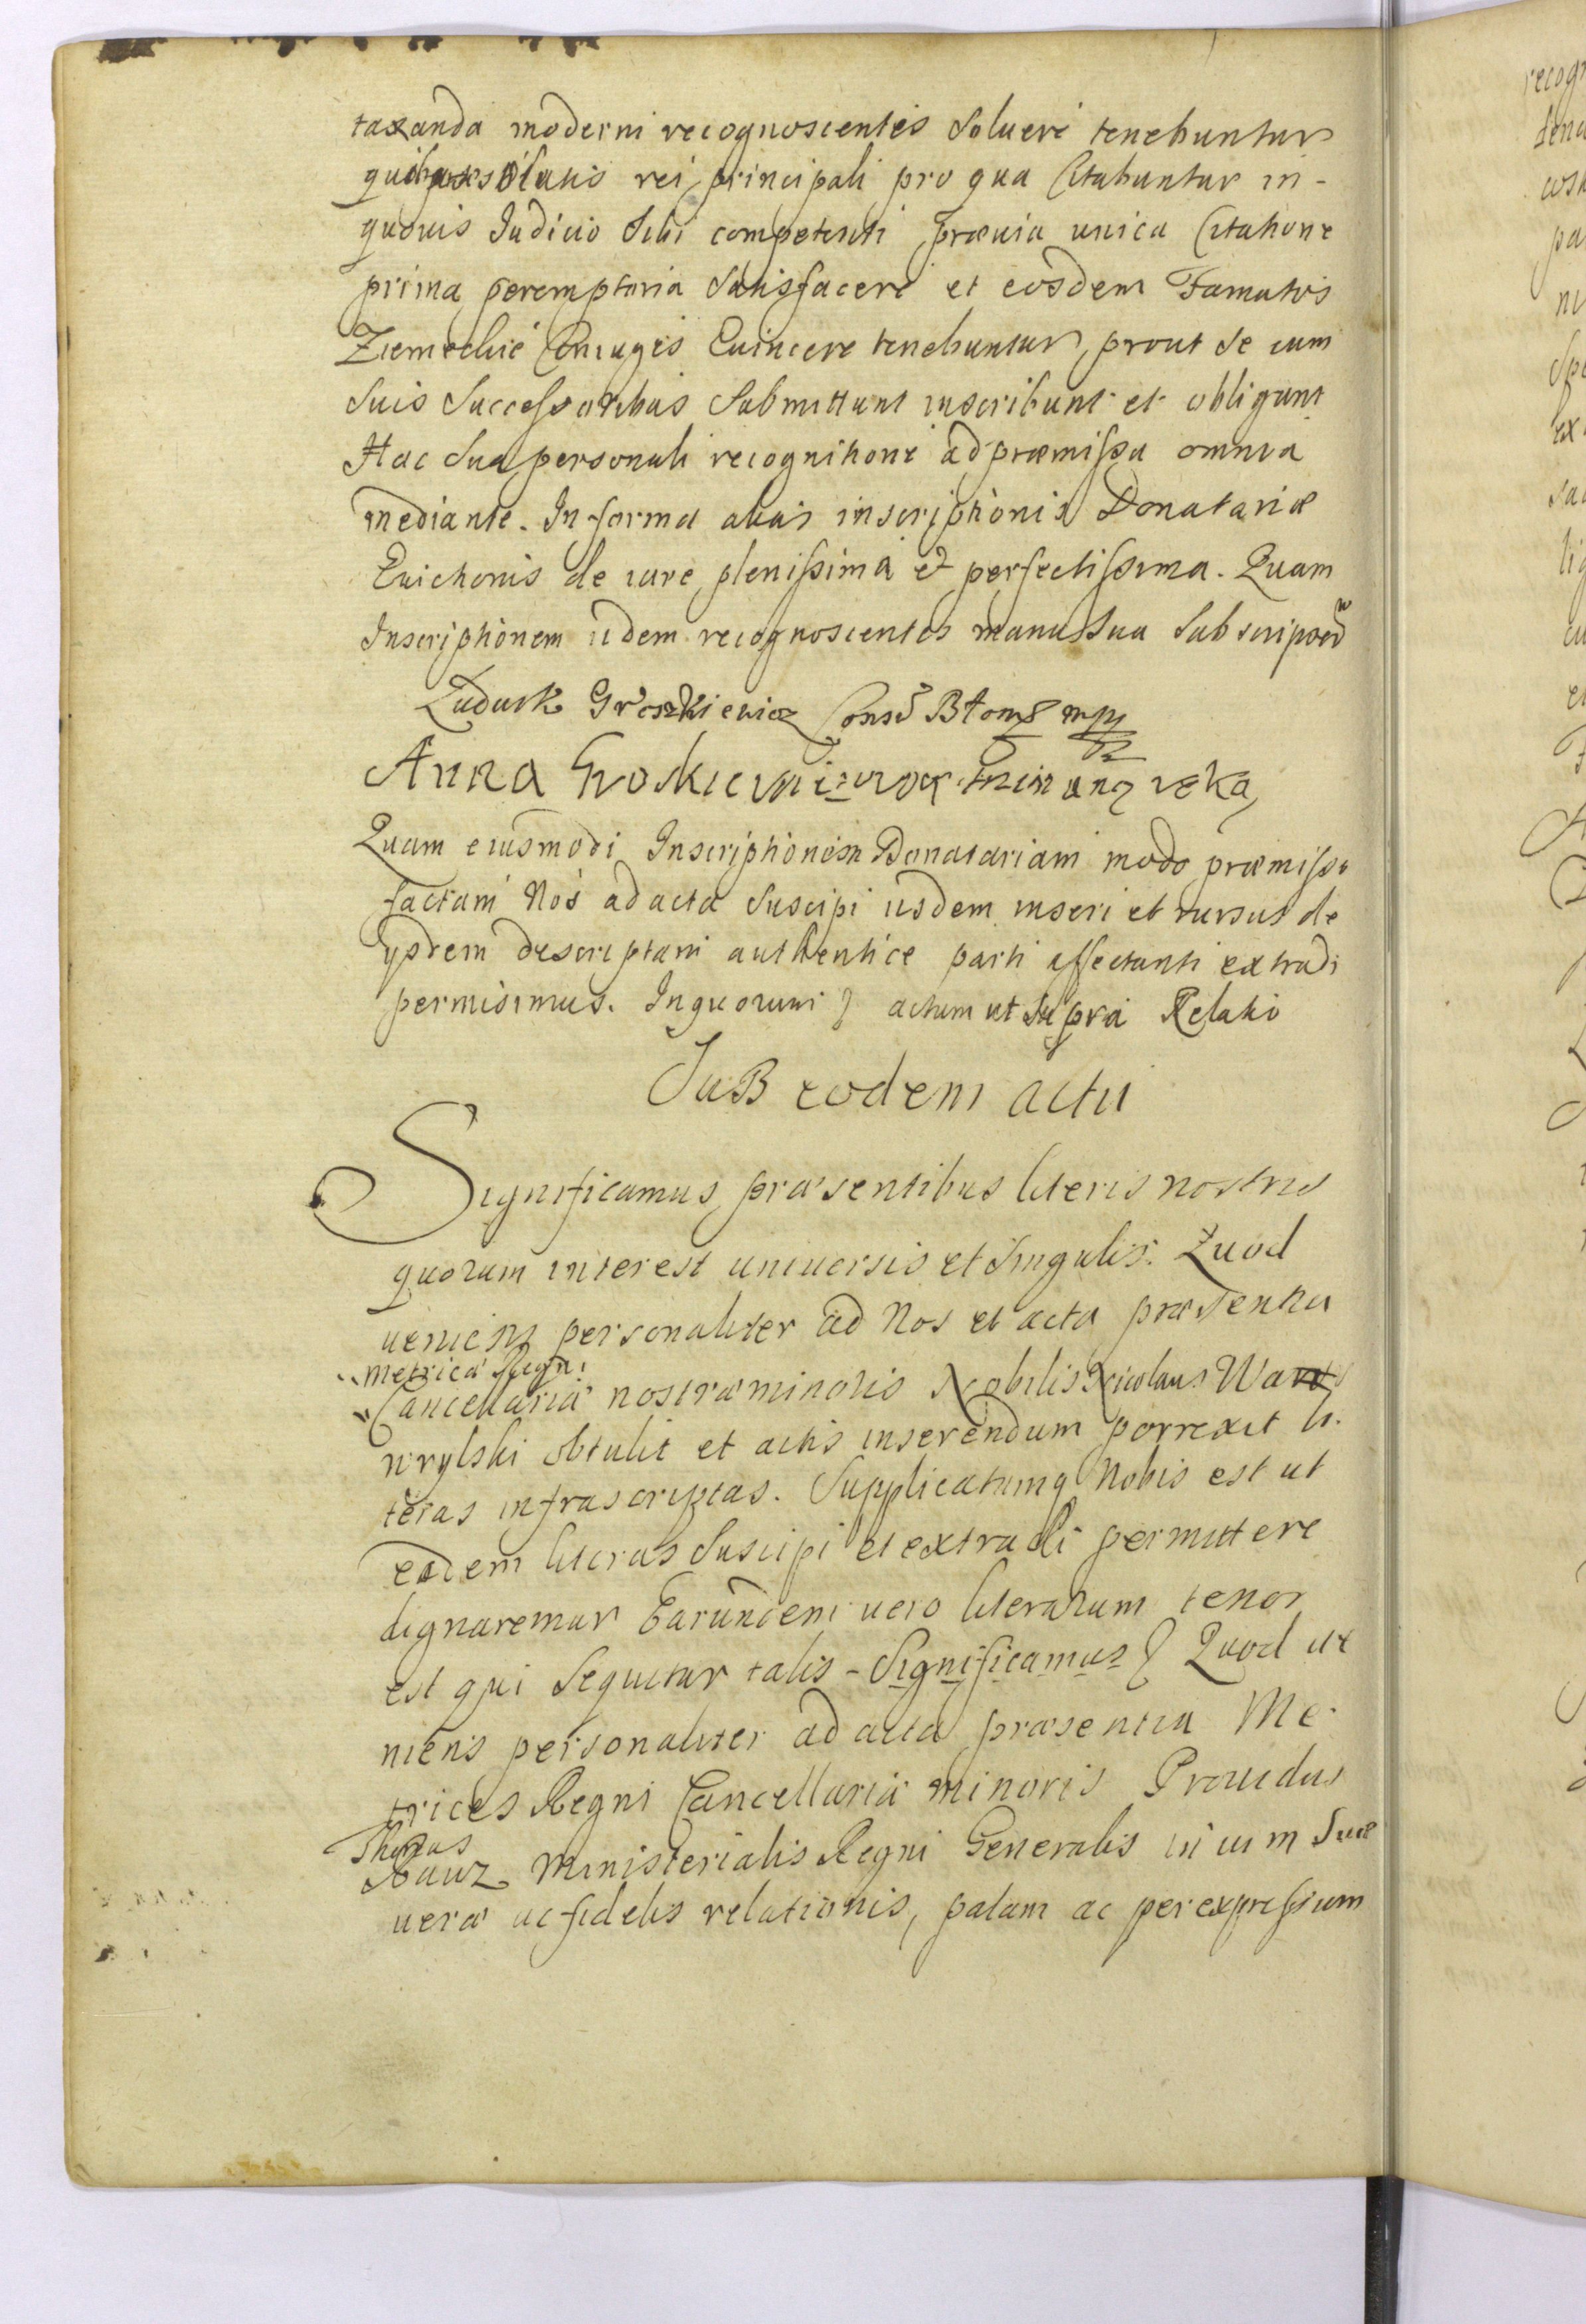 taxanda moderni recognoscentes Soluere tenebuntur
quibus solutis rei principali pro qua Citabuntur in-
quouis Iudicio Sibi competenti præuia unica Citatione
prima peremptoria Satisfacere et eosdem Famatos
Ziemechie Coniuges Euincere tenebuntur, prout se cum
Suis Successoribus Submittunt inscribunt et obligant
Hac Sua personali recognitione ad præmissa omnia
mediante. In forma aliàs inscriptionis Donatariæ
Euictionis de iure plenissima et perfectissima. Quam
Inscriptionem iidem recognoscentes manu Sua Subscripser
Ludwik Groszkiewicz Cons mpp
Anna ręką
Quam eiusmodi Inscriptionem Donatariam modo præmisso
factam Nos ad acta Suscipi iisdem inseri et rursus de
ysdem descriptam authentice parti affectanti extradi
permisimus. In quorum actum ut Supra Relatio
SuB eodem actu
Significamus præsentibus literis nostris
quorum interest uniuersis et Singulis. Quod
ueniens personaliter ad Nos et acta præsentia
Metricæ Regni
Cancellariæ nostræ minoris Nobilis Nicolaus
obtulit et actis inserendum porrexit li-
teras infrascriptas. Supplicatumq Nobis est ut
eadem literas Suscipi et extradi permittere
dignaremur Earundem uero literarum tenor
est qui Sequitur talis - Significamus Quod ue
niens personaliter ad acta præsentia Me-
trices Regni Cancellariæ minoris Prouidus
Thomas
Ministerialis Regni Generalis in uim Suæ
ueræ ac fidelis relationis, palam ac per expressum